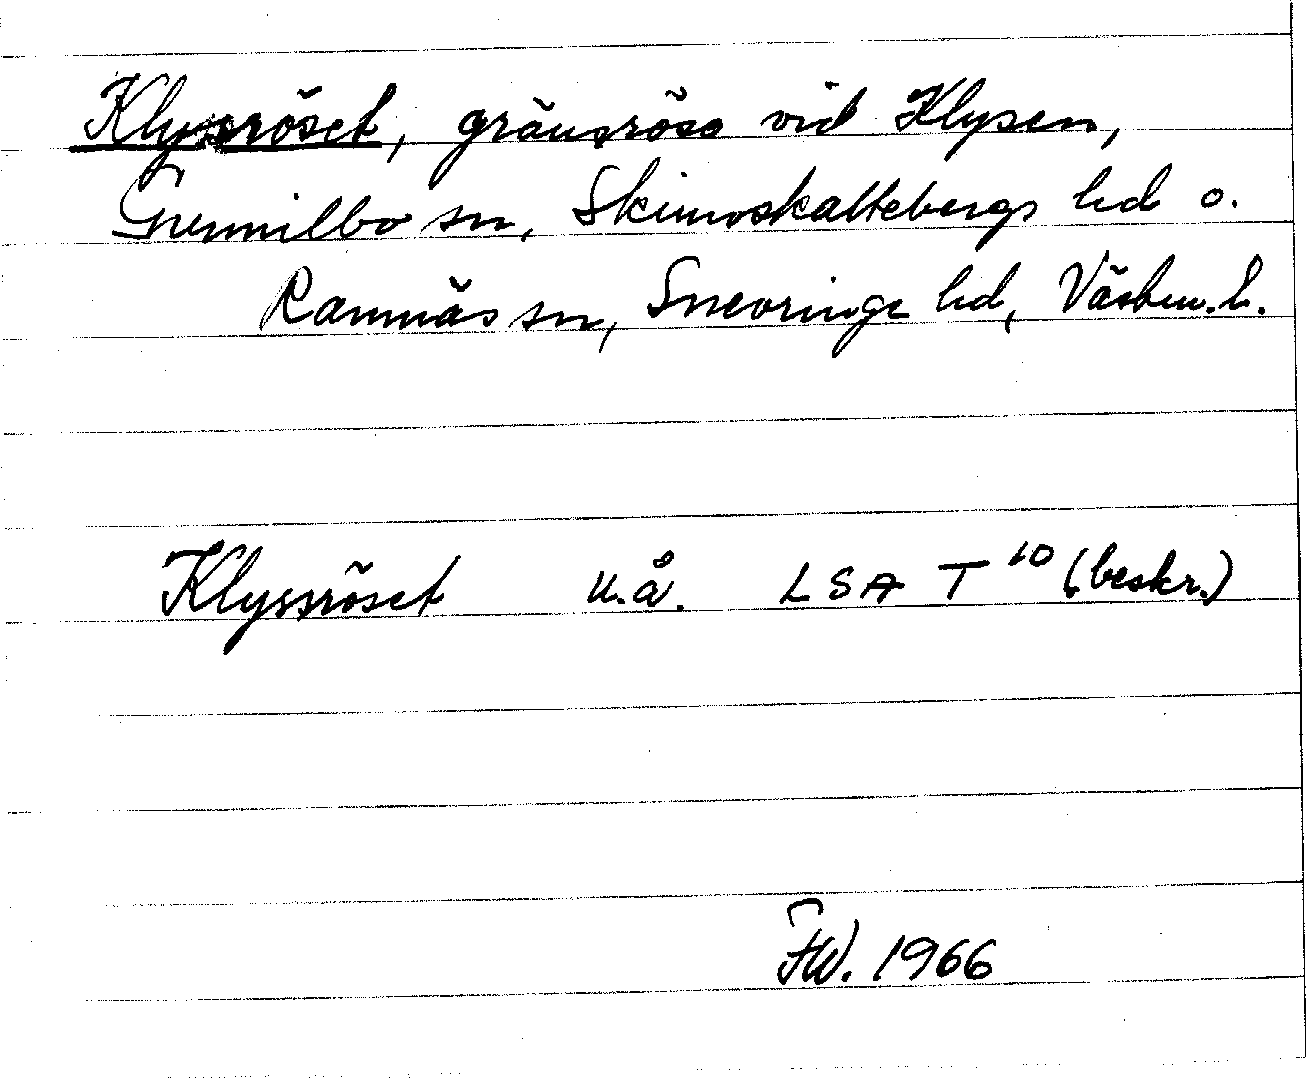 Klyssröset, gränsröse vid Klysen,
Gunnilbo sn, Skinnskattebergs hd o.
Ramnäs sn, Snevringe hd, Västm. l.
Klyssröset u.å. LSA T 10 (beskr.)
FW. 1966